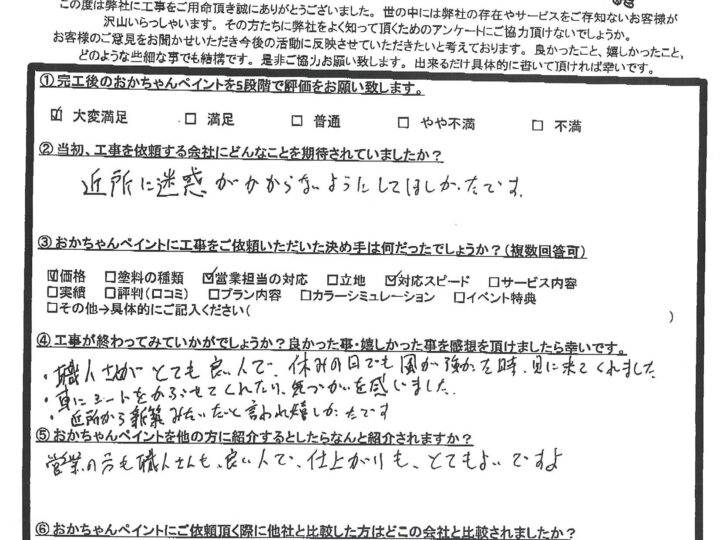 この度は弊社に工事をご用命頂き誠にありがとうございました。世の中には弊社の存在やサービスをご存知ないお客様が
沢山いらっしゃいます。その方たちに弊社をよく知って頂くためのアンケートにご協力頂けないでしょうか。
お客様のご意見をお聞かせいただき今後の活動に反映させていただきたいと考えております。良かったこと、嬉しかったこと、
どのような些細な事でも結構です。是非ご協力お願い致します。出来るだけ具体的に書いて頂ければ幸いです。
①完工後のおかちゃんペイントを5段階で評価をお願い致します。
☑ 大変満足 □ 満足 □ 普通 □ やや不満 □ 不満
②当初、工事を依頼する会社にどんなことを期待されていましたか?
近所に迷惑がかからないようにしてほしかったです。
③おかちゃんペイントに工事をご依頼いただいた決め手は何だったでしょうか?(複数回答可)
☑価格 □塗料の種類 ☑営業担当の対応 □立地 ☑対応スピード □サービス内容
□実績 □評判(口コミ) □プラン内容 □カラーシミュレーション □イベント特典
□その他→具体的にご記入ください( )
④工事が終わってみていかがでしょうか?良かった事・嬉しかった事を感想を頂けましたら幸いです。
・職人さんがとても良い人で、休みの日でも風が強かった時、見に来てくれました
・車にシートをかぶせてくれたり、気づかいを感じました。
・近所から新築みたいだと言われ嬉しかったです
⑤おかちゃんペイントを他の方に紹介するとしたらなんと紹介されますか?
営業の方も職人さんも、良い人で、仕上がりも、とてもよいですよ
⑥おかちゃんペイントにご依頼頂く際に他社と比較した方はどこの会社と比較されましたか?